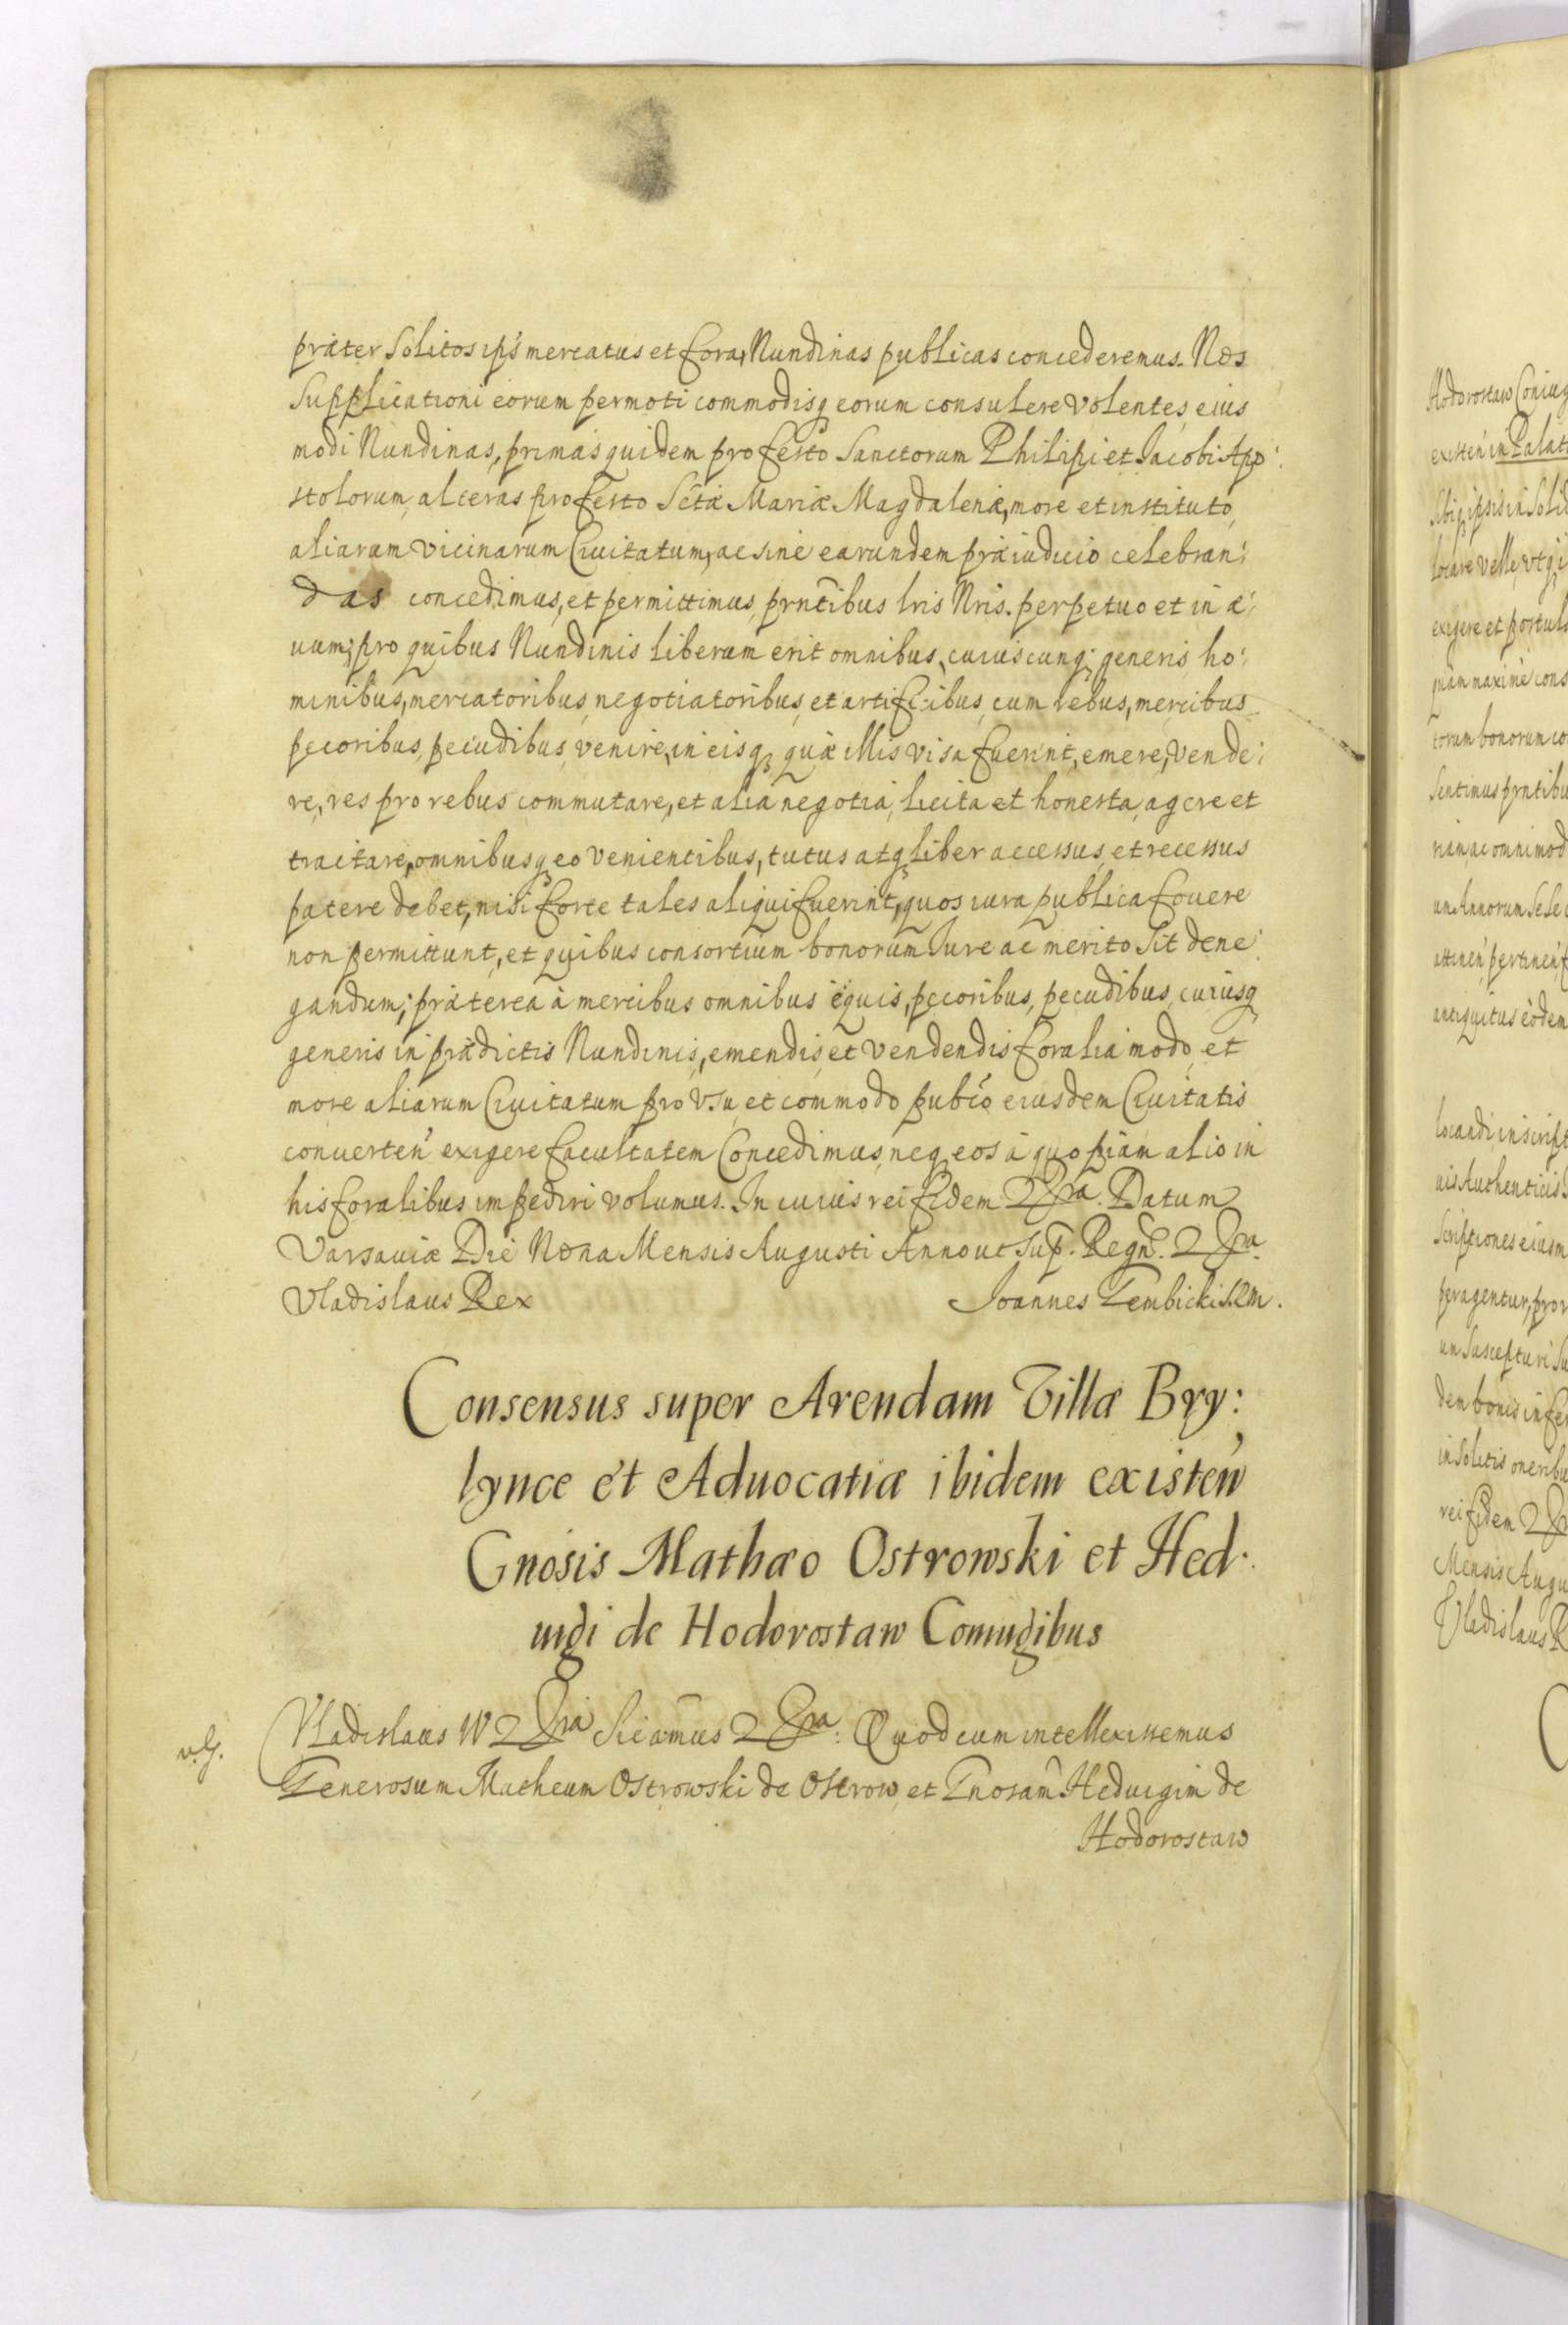 præter solitos ips mercatus et fora, Nundinas publicas concederemus. Nos
Supplicationi eorum permoti commodisq eorum consulere volentes, eius
modi Nundinas, primas quidem pro festo Sanctorum Philipi et Jacobi App:
stolorum, alteras pro festo Sctæ Mariæ Magdalenæ, more et instituto
aliarum vicinarum Ciuitatum, ac sine earundem præiudicio celebran:
das concedimus, et permittimus, prntibus lris Nris. perpetuo et in æ:
uum; pro quibus Nundinis liberum erit omnibus, cuiuscunq; generis, ho:
minibus, mercatoribus, negotiatoribus, et artificibus, cum rebus, mercibus
pecoribus, pecudibus, venire, in eisq, quæ illis visa fuerint, emere, vende:
re, res pro rebus commutare, et alia negotia, licita et honesta, agere et
tractare, omnibusq eo venientibus, tutus atq liber accessus, et recessus
patere debet, nisi forte tales aliqui fuerint, quos iura publica fouere
non permittunt, et quibus consortium bonorum Jure ac merito sit dene:
gandum; præterea à mercibus omnibus equis, pecoribus, pecudibus, cuiusq
generis in prædictis Nundinis, emendis, et vendendis foralia modo, et
more aliarum Ciuitatum pro vsu, et commodo pubco eiusdem Ciuitatis
conuerten exigere facultatem Concedimus, neq eos à quopiam alio in
his foralibus impediri volumus. In cuius rei fidem 2 Xra. Datum
Varsauiæ Die Nona Mensis Augusti Anno ut sup. Regn. 2 Xra.
Vladislaus Rex Joannes Gembicki S.R.M.
Consensus super Arendam Villæ Bry:
lynce et Aduocatiæ ibidem existen
Gnosis Mathæo Ostrowski et Hed:
uigi de Hodorostaw Coniugibus
v.g.
Vladislaus IV 2 Xra Sicamus 2 Xra: Quod cum intellexissemus
Generosum Matheum Ostrowski de Ostrow, et Gnosam Heduigim de
Hodorostaw
Hodorostaw Coniug
existen in Palat
locare velle, vtq i
exigere et postul
quam maxime cons
torum bonorum co
sentimus prntibu
riam, ac omnimod
um Annorum sele
attinen, pertinen
antiquitus eodem
locandi, inscript
uis Authenticis
scriptiones eiusm
peragentur, pro
um suscepturi su
dem bonis infe
insolitis oneribu
rei fidem 2 Xr
Mensis Augu
Vladislaus R